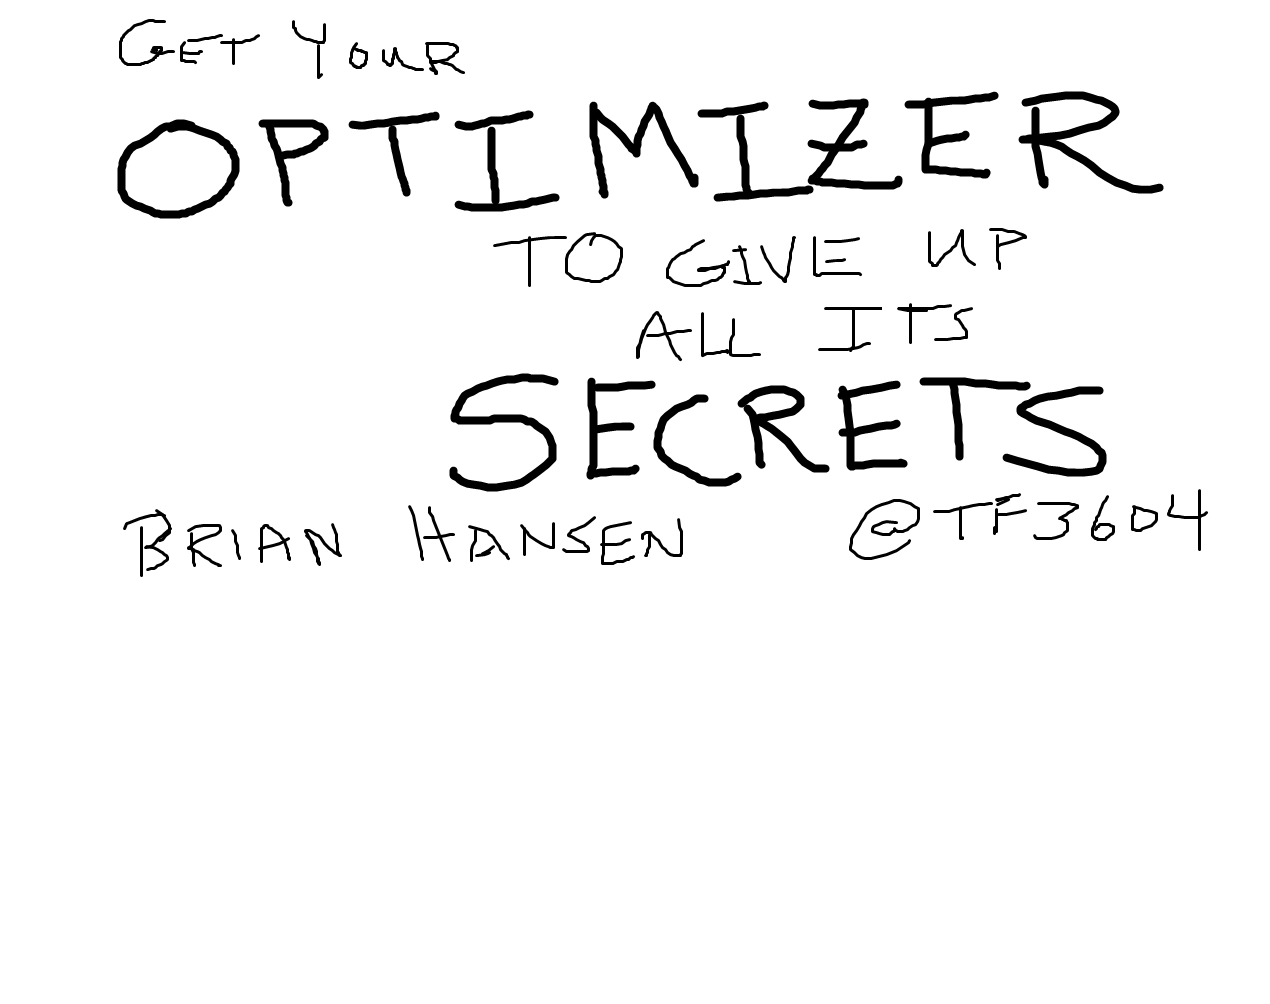 GET YOUR
OPTIMIZER
TO GIVE UP
ALL ITS
SECRETS
BRIAN HANSEN @TF3604